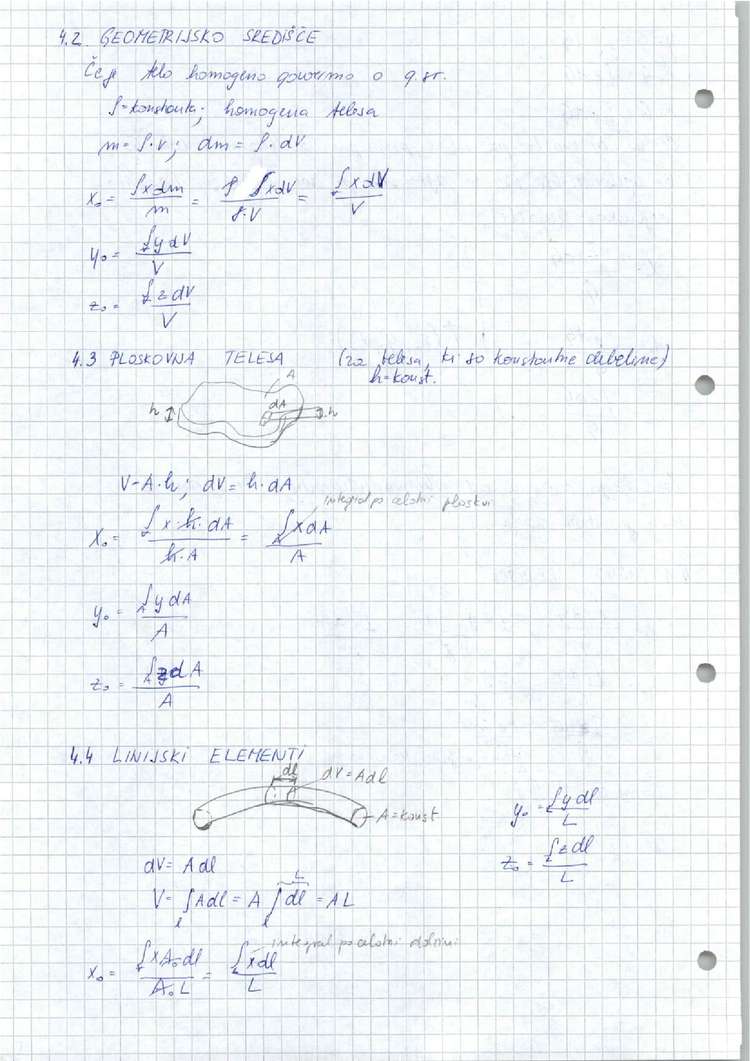 4.2 GEOMETRIJSKO SREDIŠČE
Če je telo homogeno govorimo o g.sr.
ρ=konstanta; homogena telesa
m=ρ·V; dm=ρ·dV
x₀ = ∫x dm / m = ρ ∫x dV / ρ·V = ∫x dV / V
y₀ = ∫y dV / V
z₀ = ∫z dV / V
4.3 PLOSKOVNA TELESA (za telesa, ki so konstantne debeline)
h=konst.
A
h dA h
V=A·h; dV=h·dA
integral po celotni ploskvi
x₀ = ∫x·h·dA / h·A = ∫x dA / A
y₀ = ∫y dA / A
z₀ = ∫z dA / A
4.4 LINIJSKI ELEMENTI
dl dV=Adl
A=konst
y₀ = ∫y dl / L
z₀ = ∫z dl / L
dV= A dl
V= ∫Adl = A ∫dl = AL
l l L
integral po celotni dolžini
x₀ = ∫x A₀ dl / A₀ L = ∫x dl / L